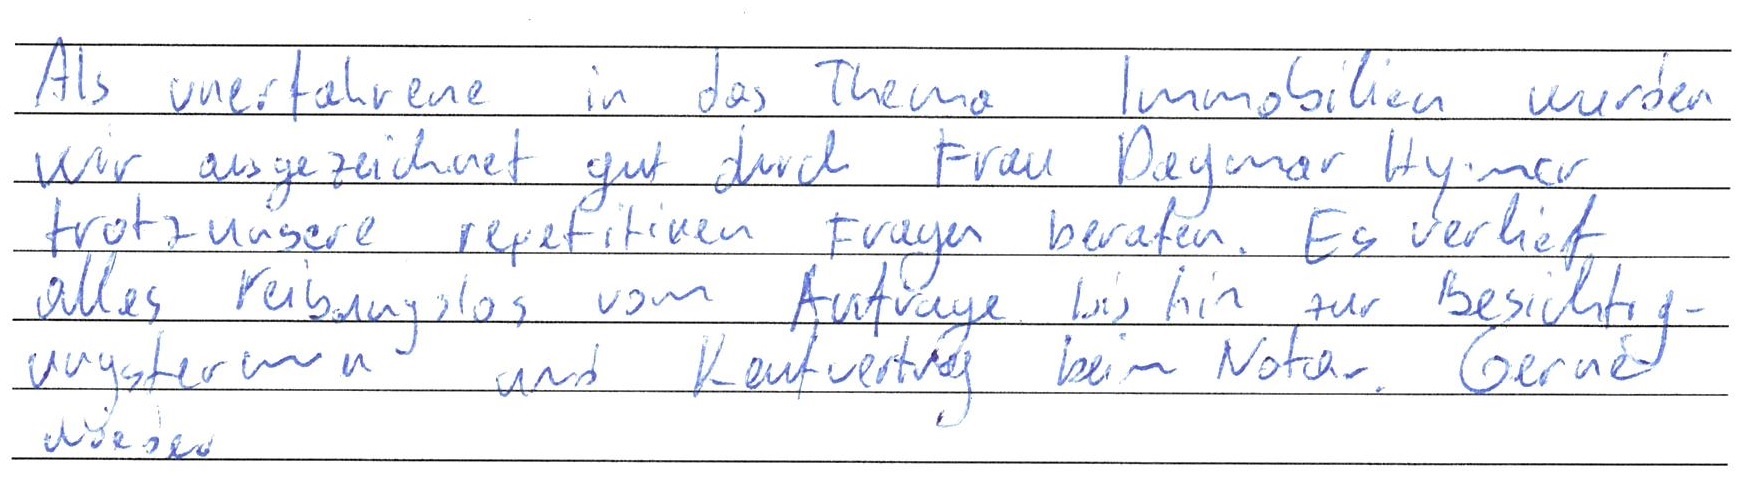 Als unerfahrene in das Thema Immobilien wurden
wir ausgezeichnet gut durch Frau Dagmar
trotz unsere repetitiven Fragen beraten. Es verlief
alles reibungslos vom Anfrage bis hin zur Besichtig-
ungstermin und Kaufvertrag beim Notar. Gerne
wieder